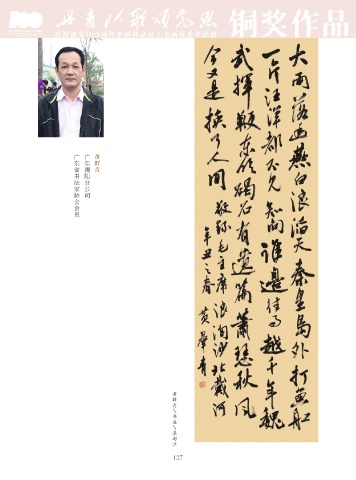 丹青以歌颂党恩
铜奖作品
黄群青
广东揭阳分公司
广东省书法家协会会员
大雨落幽燕白浪滔天秦皇岛外打鱼船
一片汪洋都不见知向谁边往事越千年魏
武挥鞭东临碣石有遗篇萧瑟秋风
今又是换了人间 敬录毛主席浪淘沙北戴河
辛丑之春 黄群青
127